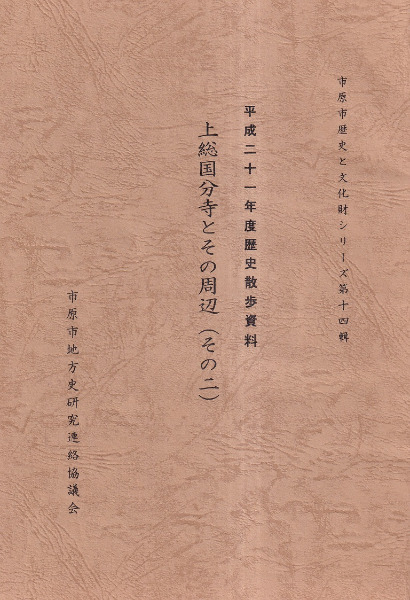 市原市歴史と文化財シリーズ第十四輯
平成二十一年度歴史散歩資料
上総国分寺とその周辺（その二）
市原市地方史研究連絡協議会